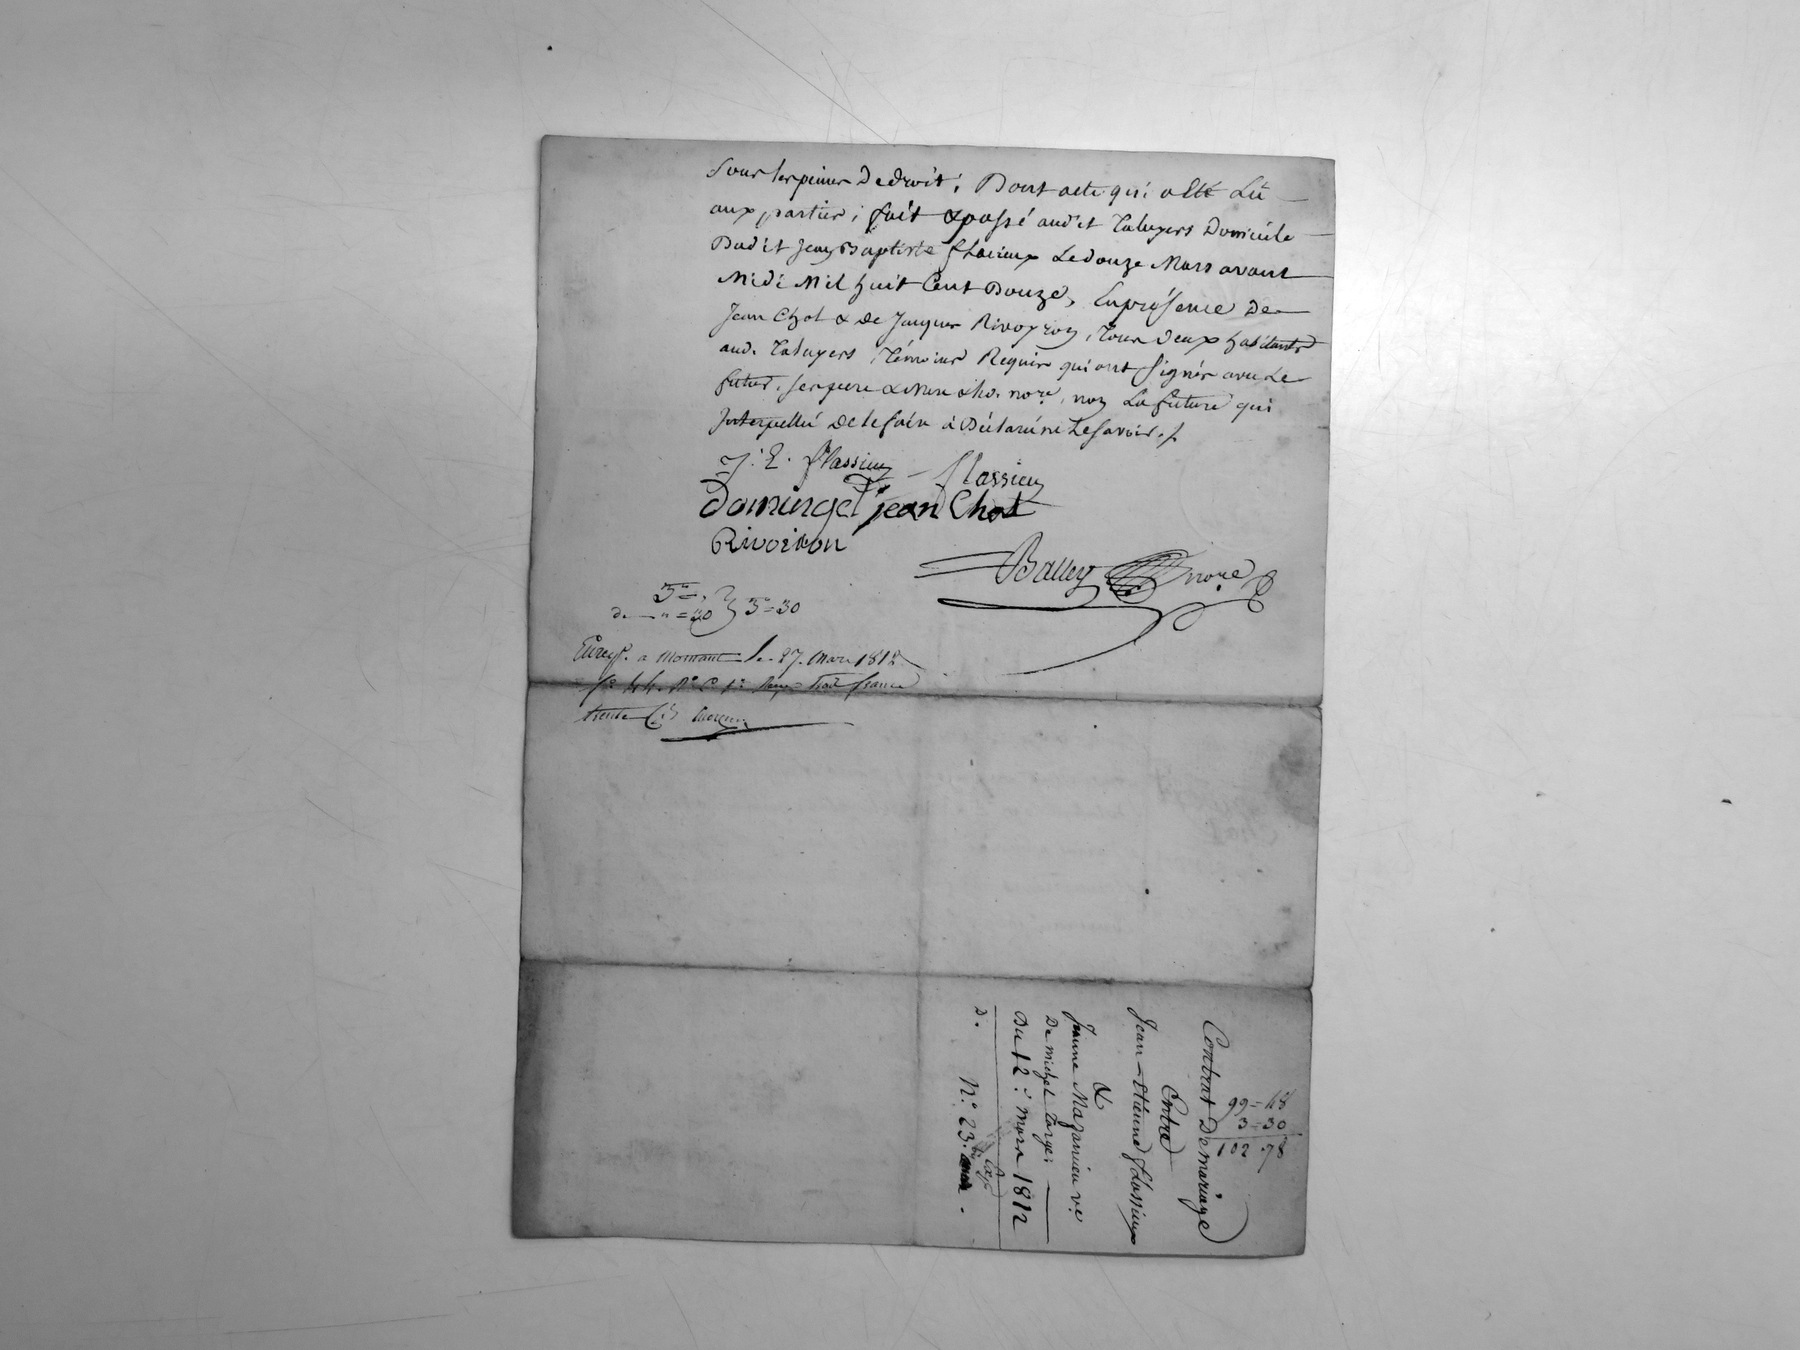 Sous les peines de droit; Dont acte qui a été Lû
aux parties; fait & passé aud.it Taluyers Domicile
Dudit Jean Baptiste flassieux Le douze Mars avant
Midi Mil huit Cent Douze, En présence De
Jean Chol & de Jacques Rivoyron, Tous deux habitants
aud. Taluyers, Témoins Requis qui ont Signés avec Le
futur, ses pere & Mere & no.re, non La future qui
Interpellée de le faire à Déclaré ne Le savoir./.
J. E. flassieux flassieux
Dominget jean Chol
Rivoiron
Balley no.re
3 =
d. — " = 30 } 3 = 30
Enreg. a Mornant le 27. Mars 1812
trois francs
trente C.es
99 = 48
3 = 30
102 . 78
Contrat De mariage
Entre
Jean-Etienne flassieux
&
Jeanne Mazanieu v.e
De michel
Du 12: mars 1812
D.
N.o 23.